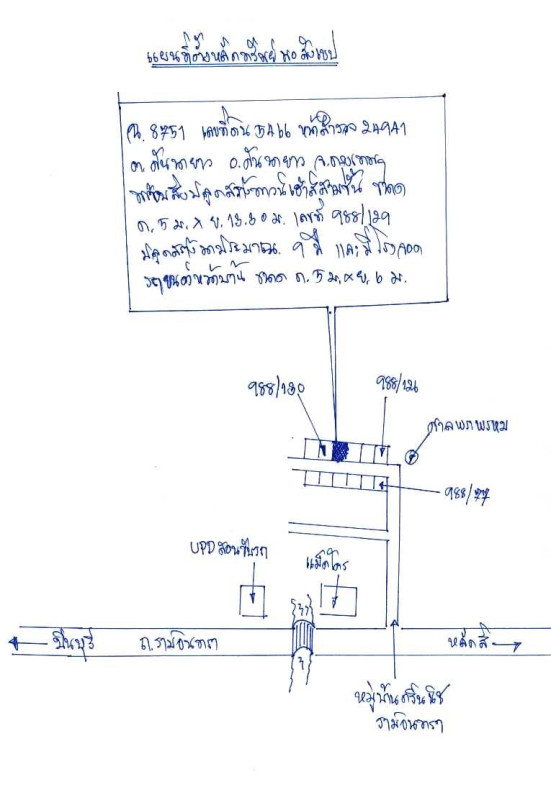 แผนที่ตั้งหลักทรัพย์ โดยสังเขป
น. 8751 เลขที่ดิน 5466 หน้าสำรวจ 24941
ต. คันนายาว อ. คันนายาว จ. กรุงเทพฯ
พร้อมสิ่งปลูกสร้างทาวน์เฮ้าส์สามชั้น ขนาด
ก. 5 ม. × ย. 13.30 ม. เลขที่ 988/129
ปลูกสร้างมาประมาณ 9 ปี และมีโรงจอด
รถยนต์หน้าบ้าน ขนาด ก. 5 ม. × ย. 6 ม.
988/130
988/126
ศาลพระพรหม
988/77
UPD สอนขับรถ
แม็คโคร
มีนบุรี
ถ.รามอินทรา
หลักสี่
หมู่บ้านปรีชา
รามอินทรา